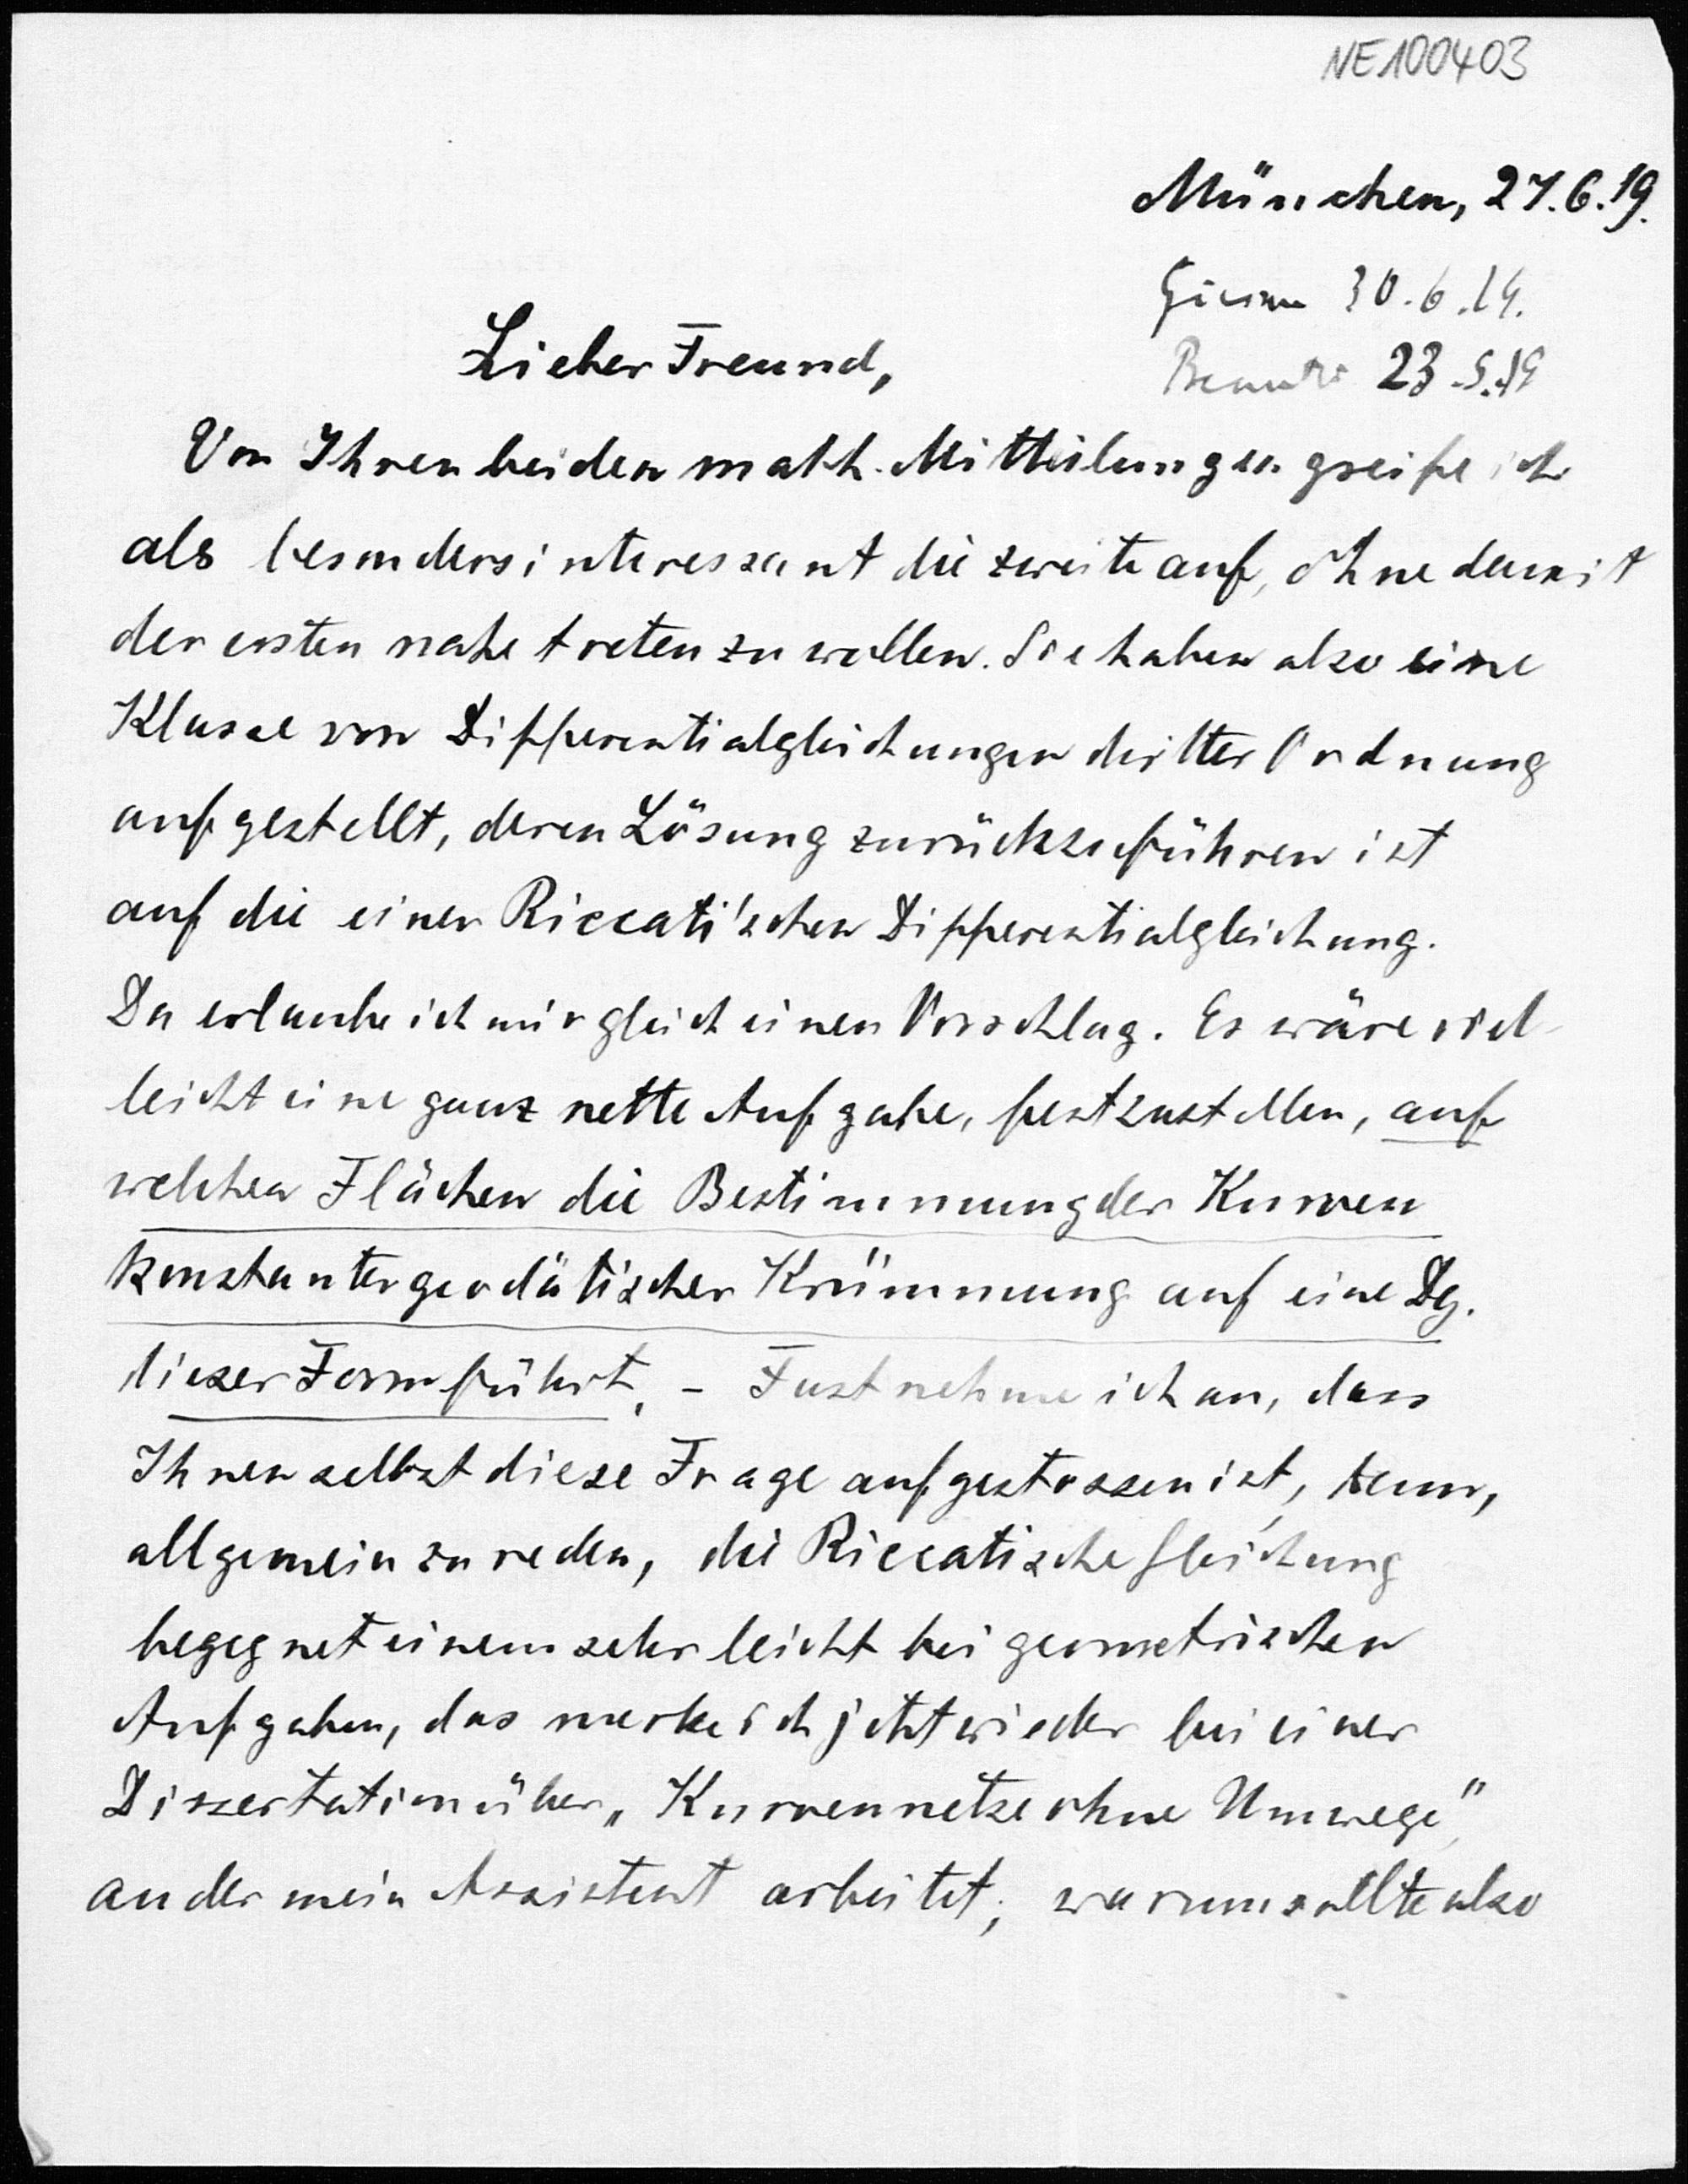 NE100403
München, 27.6.19.
30.6.19.
Lieber Freund,
23.5.19
Von Ihren beiden math. Mittheilungen greife ich
als besonders interessant die zweite auf, ohne damit
der ersten nahe treten zu wollen. Sie haben also eine
Klasse von Differentialgleichungen dritter Ordnung
aufgestellt, deren Lösung zurückzuführen ist
auf die einer Riccati'schen Differentialgleichung.
Da erlaube ich mir gleich einen Vorschlag. Es wäre viel-
leicht eine ganz nette Aufgabe, festzustellen, auf
welchen Flächen die Bestimmung der Kurven
konstanter geodätischer Krümmung auf eine Dg.
dieser Form führt. – Fast nehme ich an, dass
Ihnen selbst diese Frage aufgestossen ist, denn,
allgemein zu reden, die Riccatische Gleichung
begegnet einem sehr leicht bei geometrischen
Aufgaben, das merke ich jetzt wieder bei einer
Dissertation über „Kurvennetze ohne Umwege",
an der mein Assistent arbeitet; warum sollte also